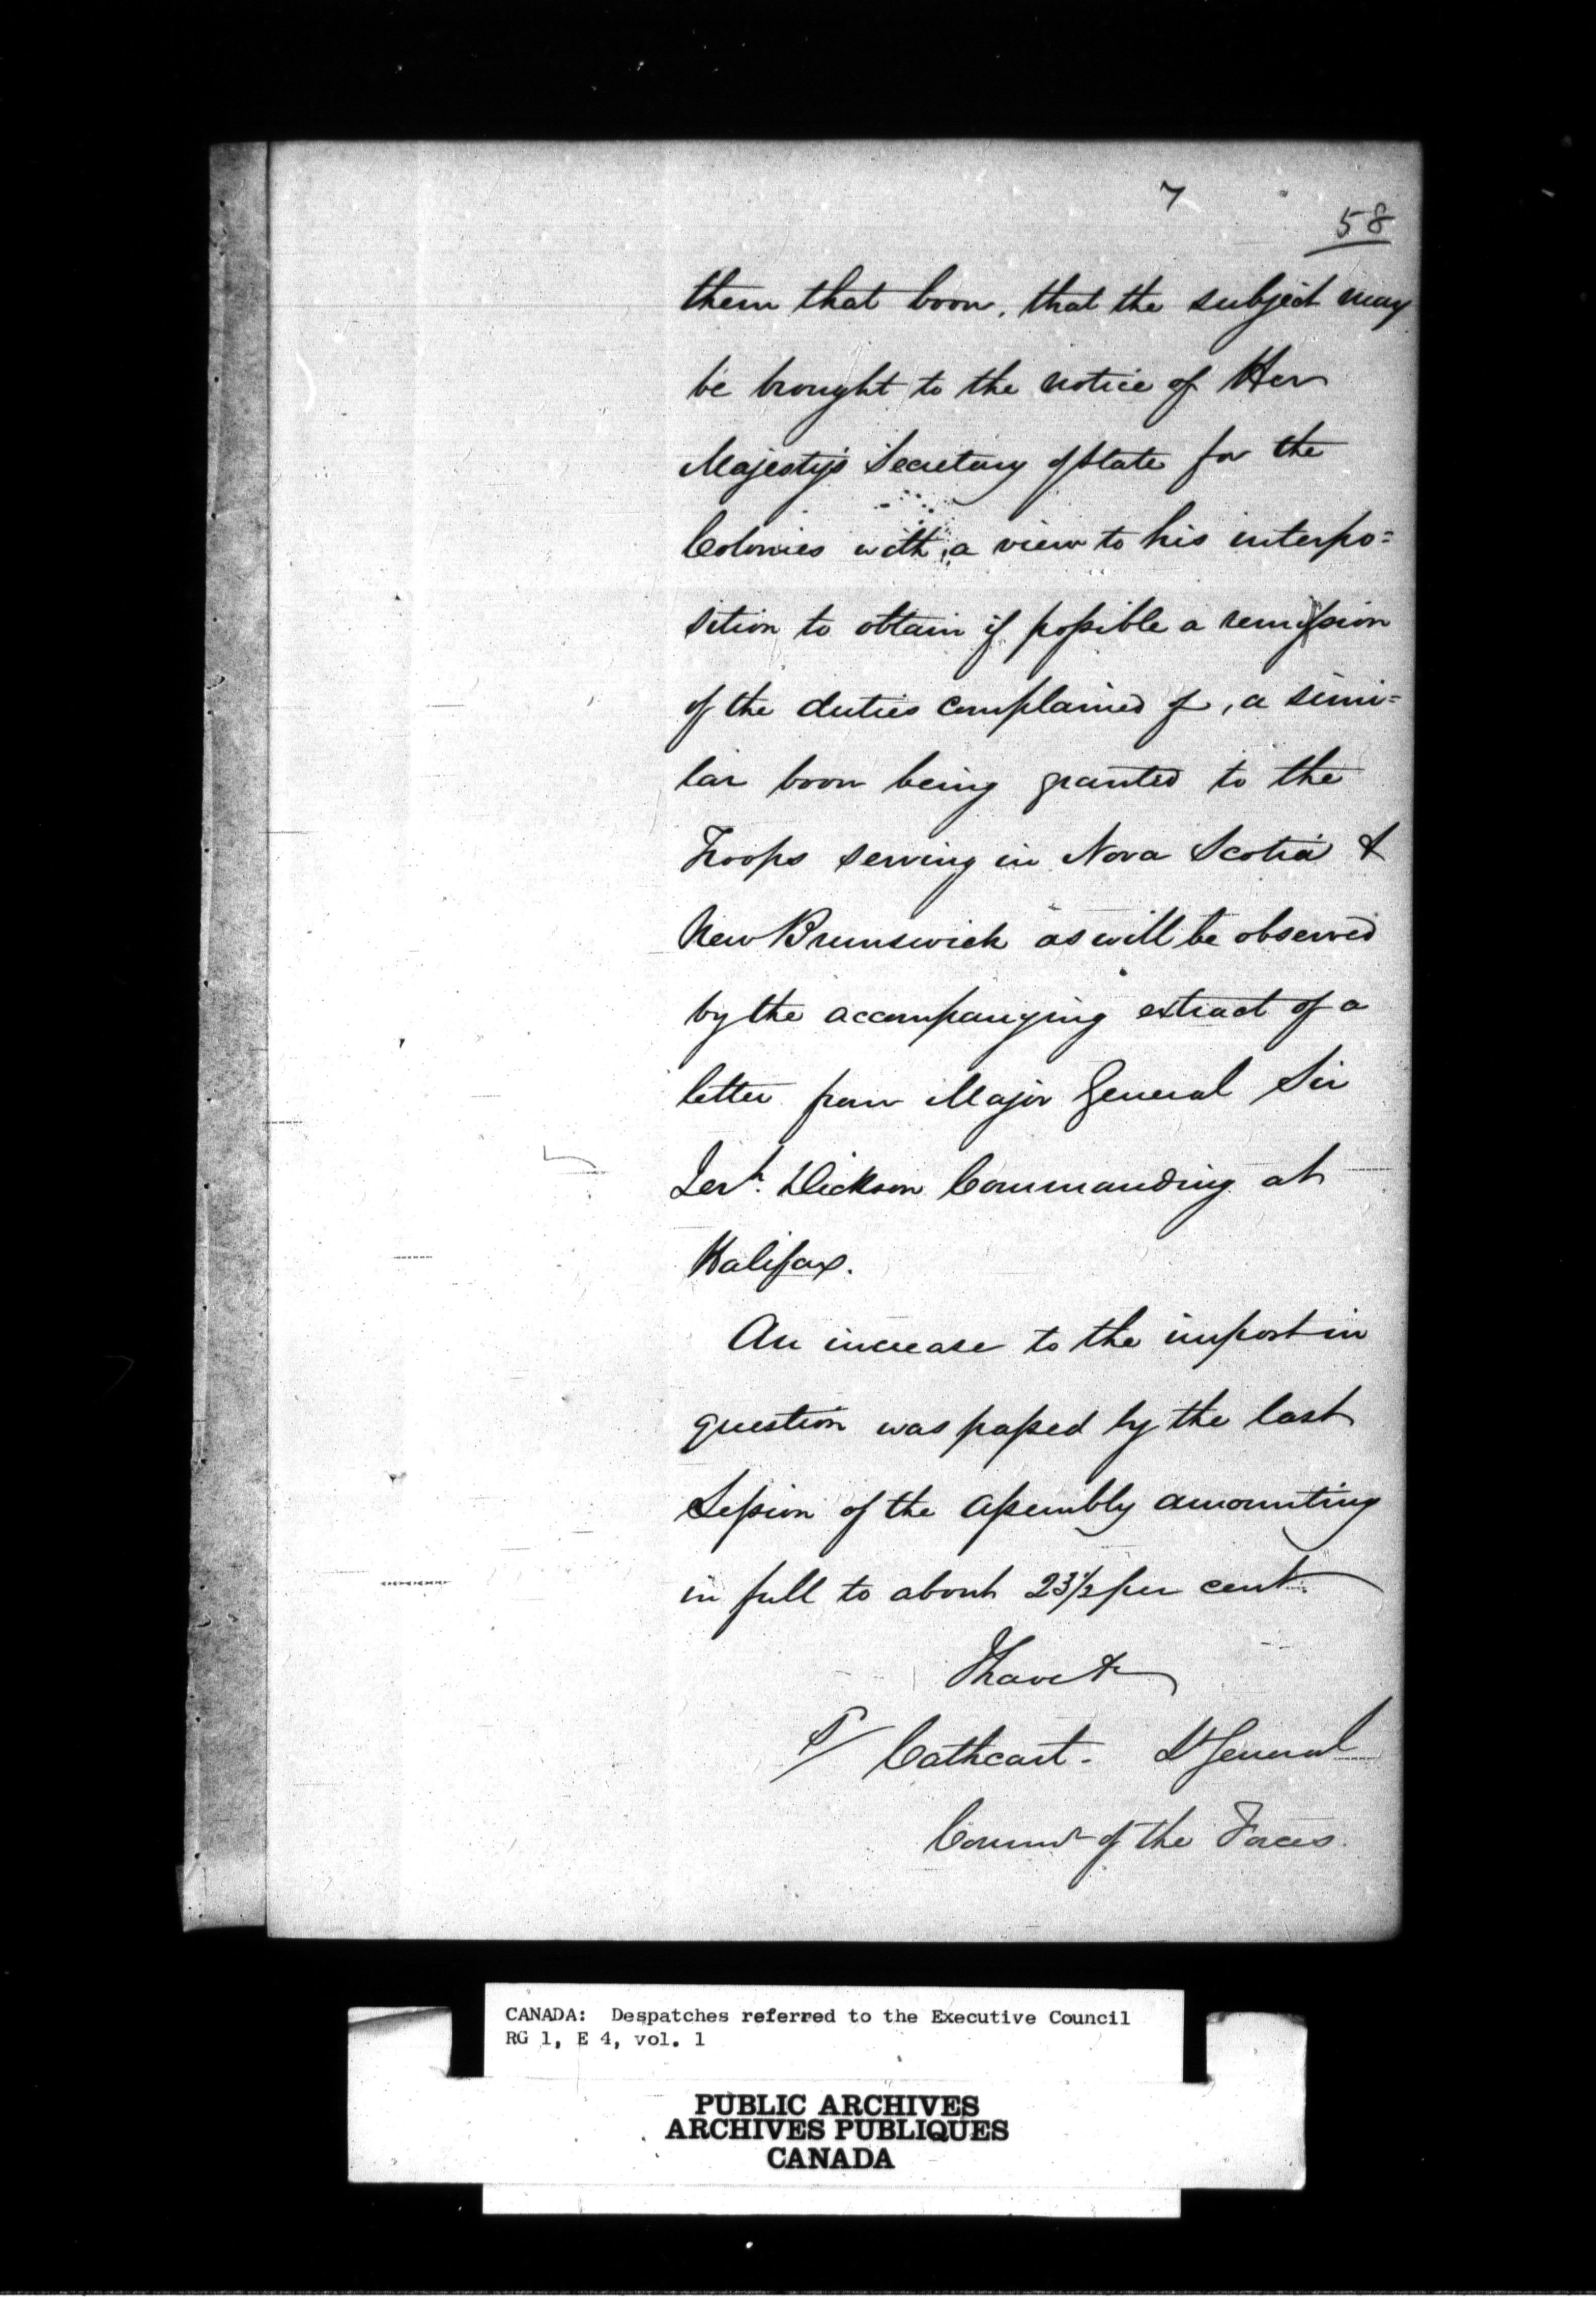 7
58
them that boon, that the subject may
be brought to the notice of Her
Majesty's Secretary of State for the
Colonies with a view to his interpo=
sition to obtain if possible a remission
of the duties complained of, a simi=
lar boon being granted to the
Troops serving in Nova Scotia &
New Brunswick as will be observed
by the accompanying extract of a
letter from Major General Sir
Jerh. Dickson Commanding at
Halifax.
An increase to the impost in
question was passed by the last
Session of the Assembly amounting
in full to about 23½ per cent.
I have &
S/ Cathcart. Lt General
Commr of the Forces.
CANADA: Despatches referred to the Executive Council
RG 1, E 4, vol. 1
PUBLIC ARCHIVES
ARCHIVES PUBLIQUES
CANADA